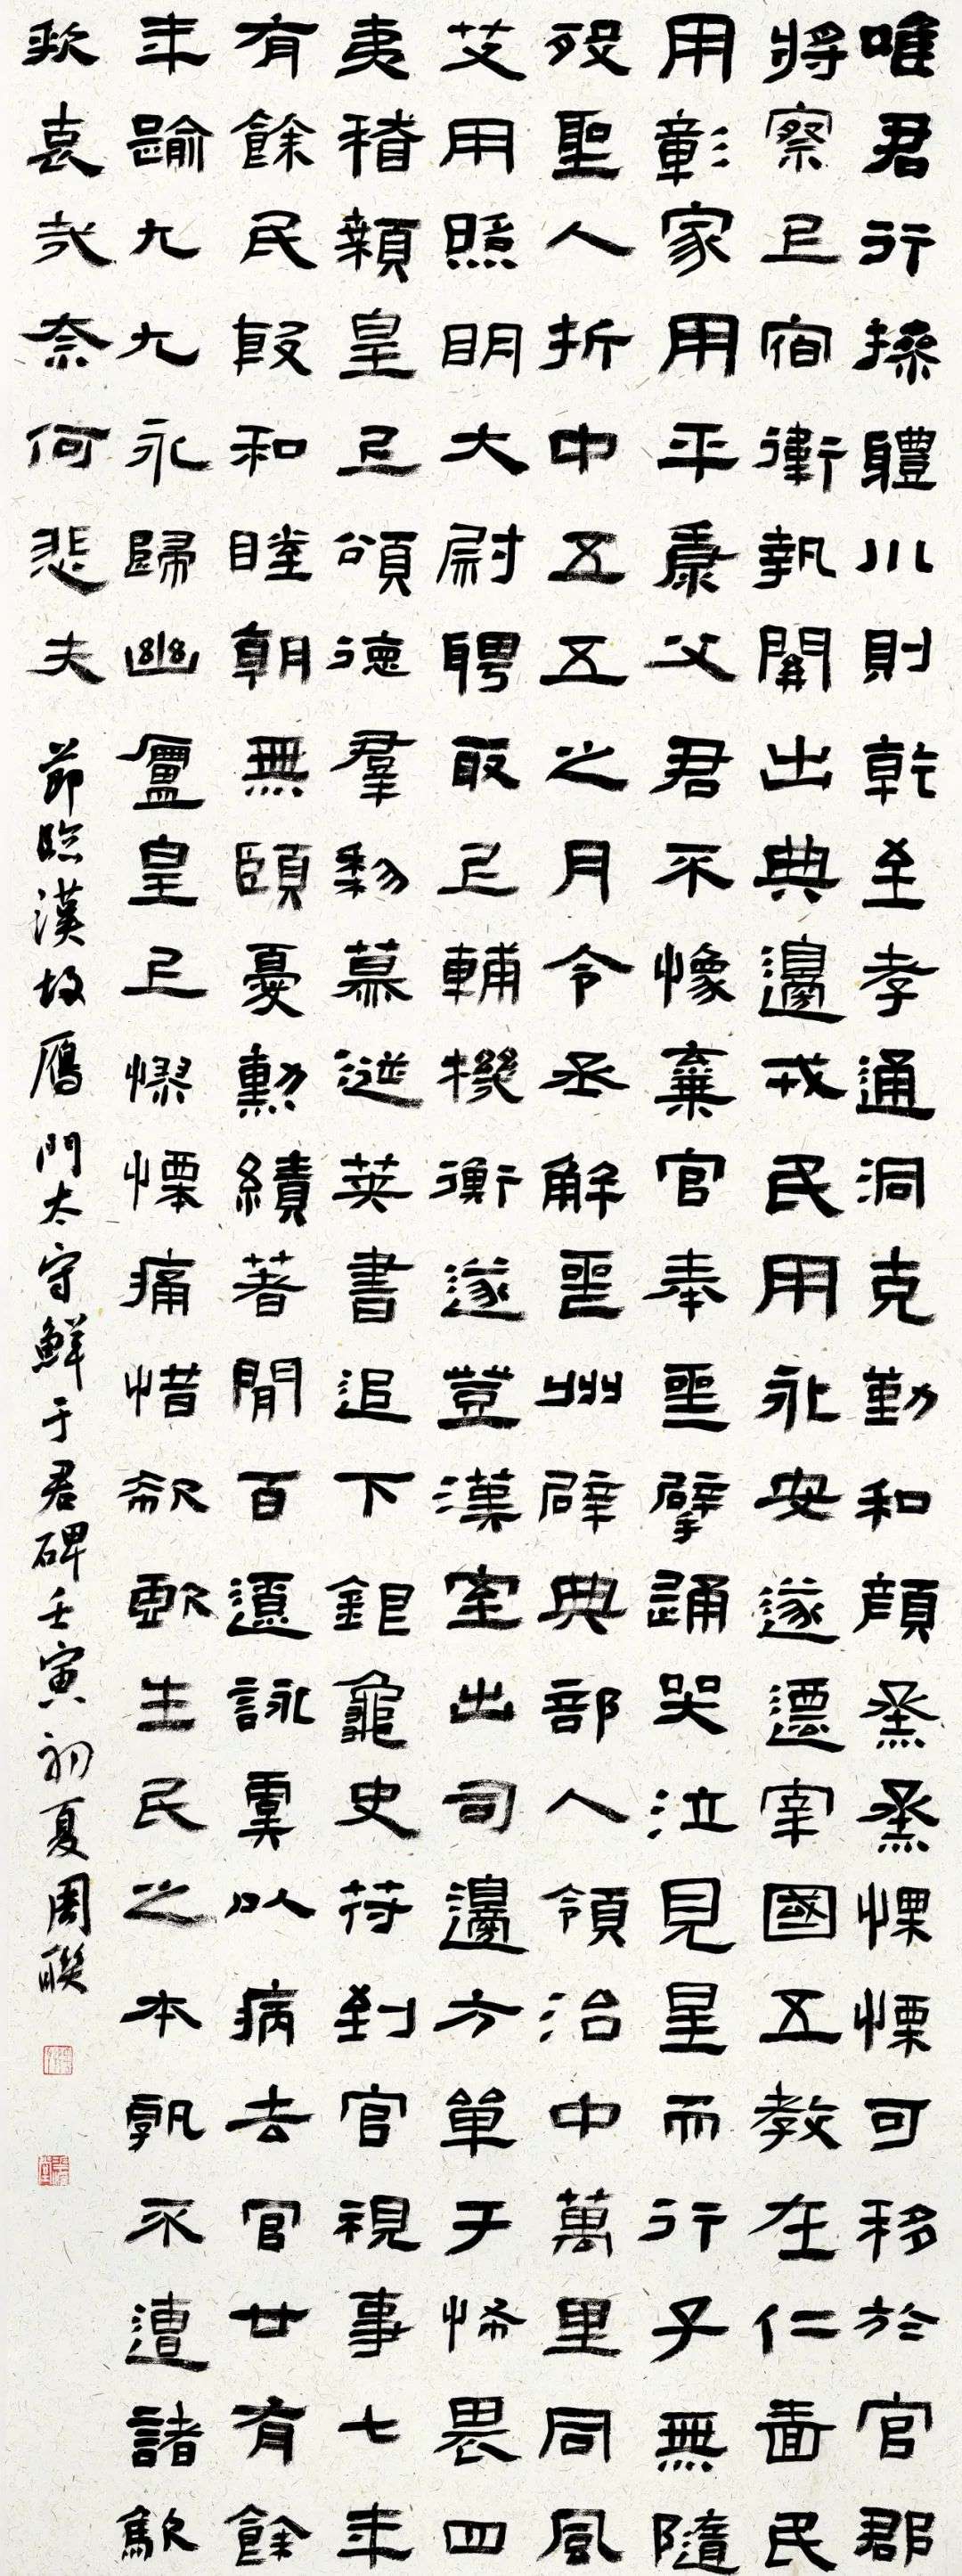 唯君行操體川則乾至孝通洞克勤和顏烝烝慄慄可移於官郡
將察㠯宿衞執關出典邊戎民用永安遂遷宰國五教在仁嗇民
用彰家用平康父君不像棄官奉喪擗踊哭泣見星而行子無隨
歿聖人折中五五之月令丞解喪州辟典部入領治中萬里同風
艾用照明大尉聘取㠯輔機衡遂登漢室出司邊方單于怖畏四
夷稽顙皇㠯頌德羣黎慕涎英書追下銀龜史符到官視事七年
有餘民殷和睦朝無顧憂勳績著聞百遼詠虞以病去官廿有餘
年踰九九永歸幽廬皇㠯憀慄痛惜欷歔生民之本孰不遭諸
歟哀哉奈何悲夫
節臨漢故鴈門太守鮮于君碑壬寅初夏周聯